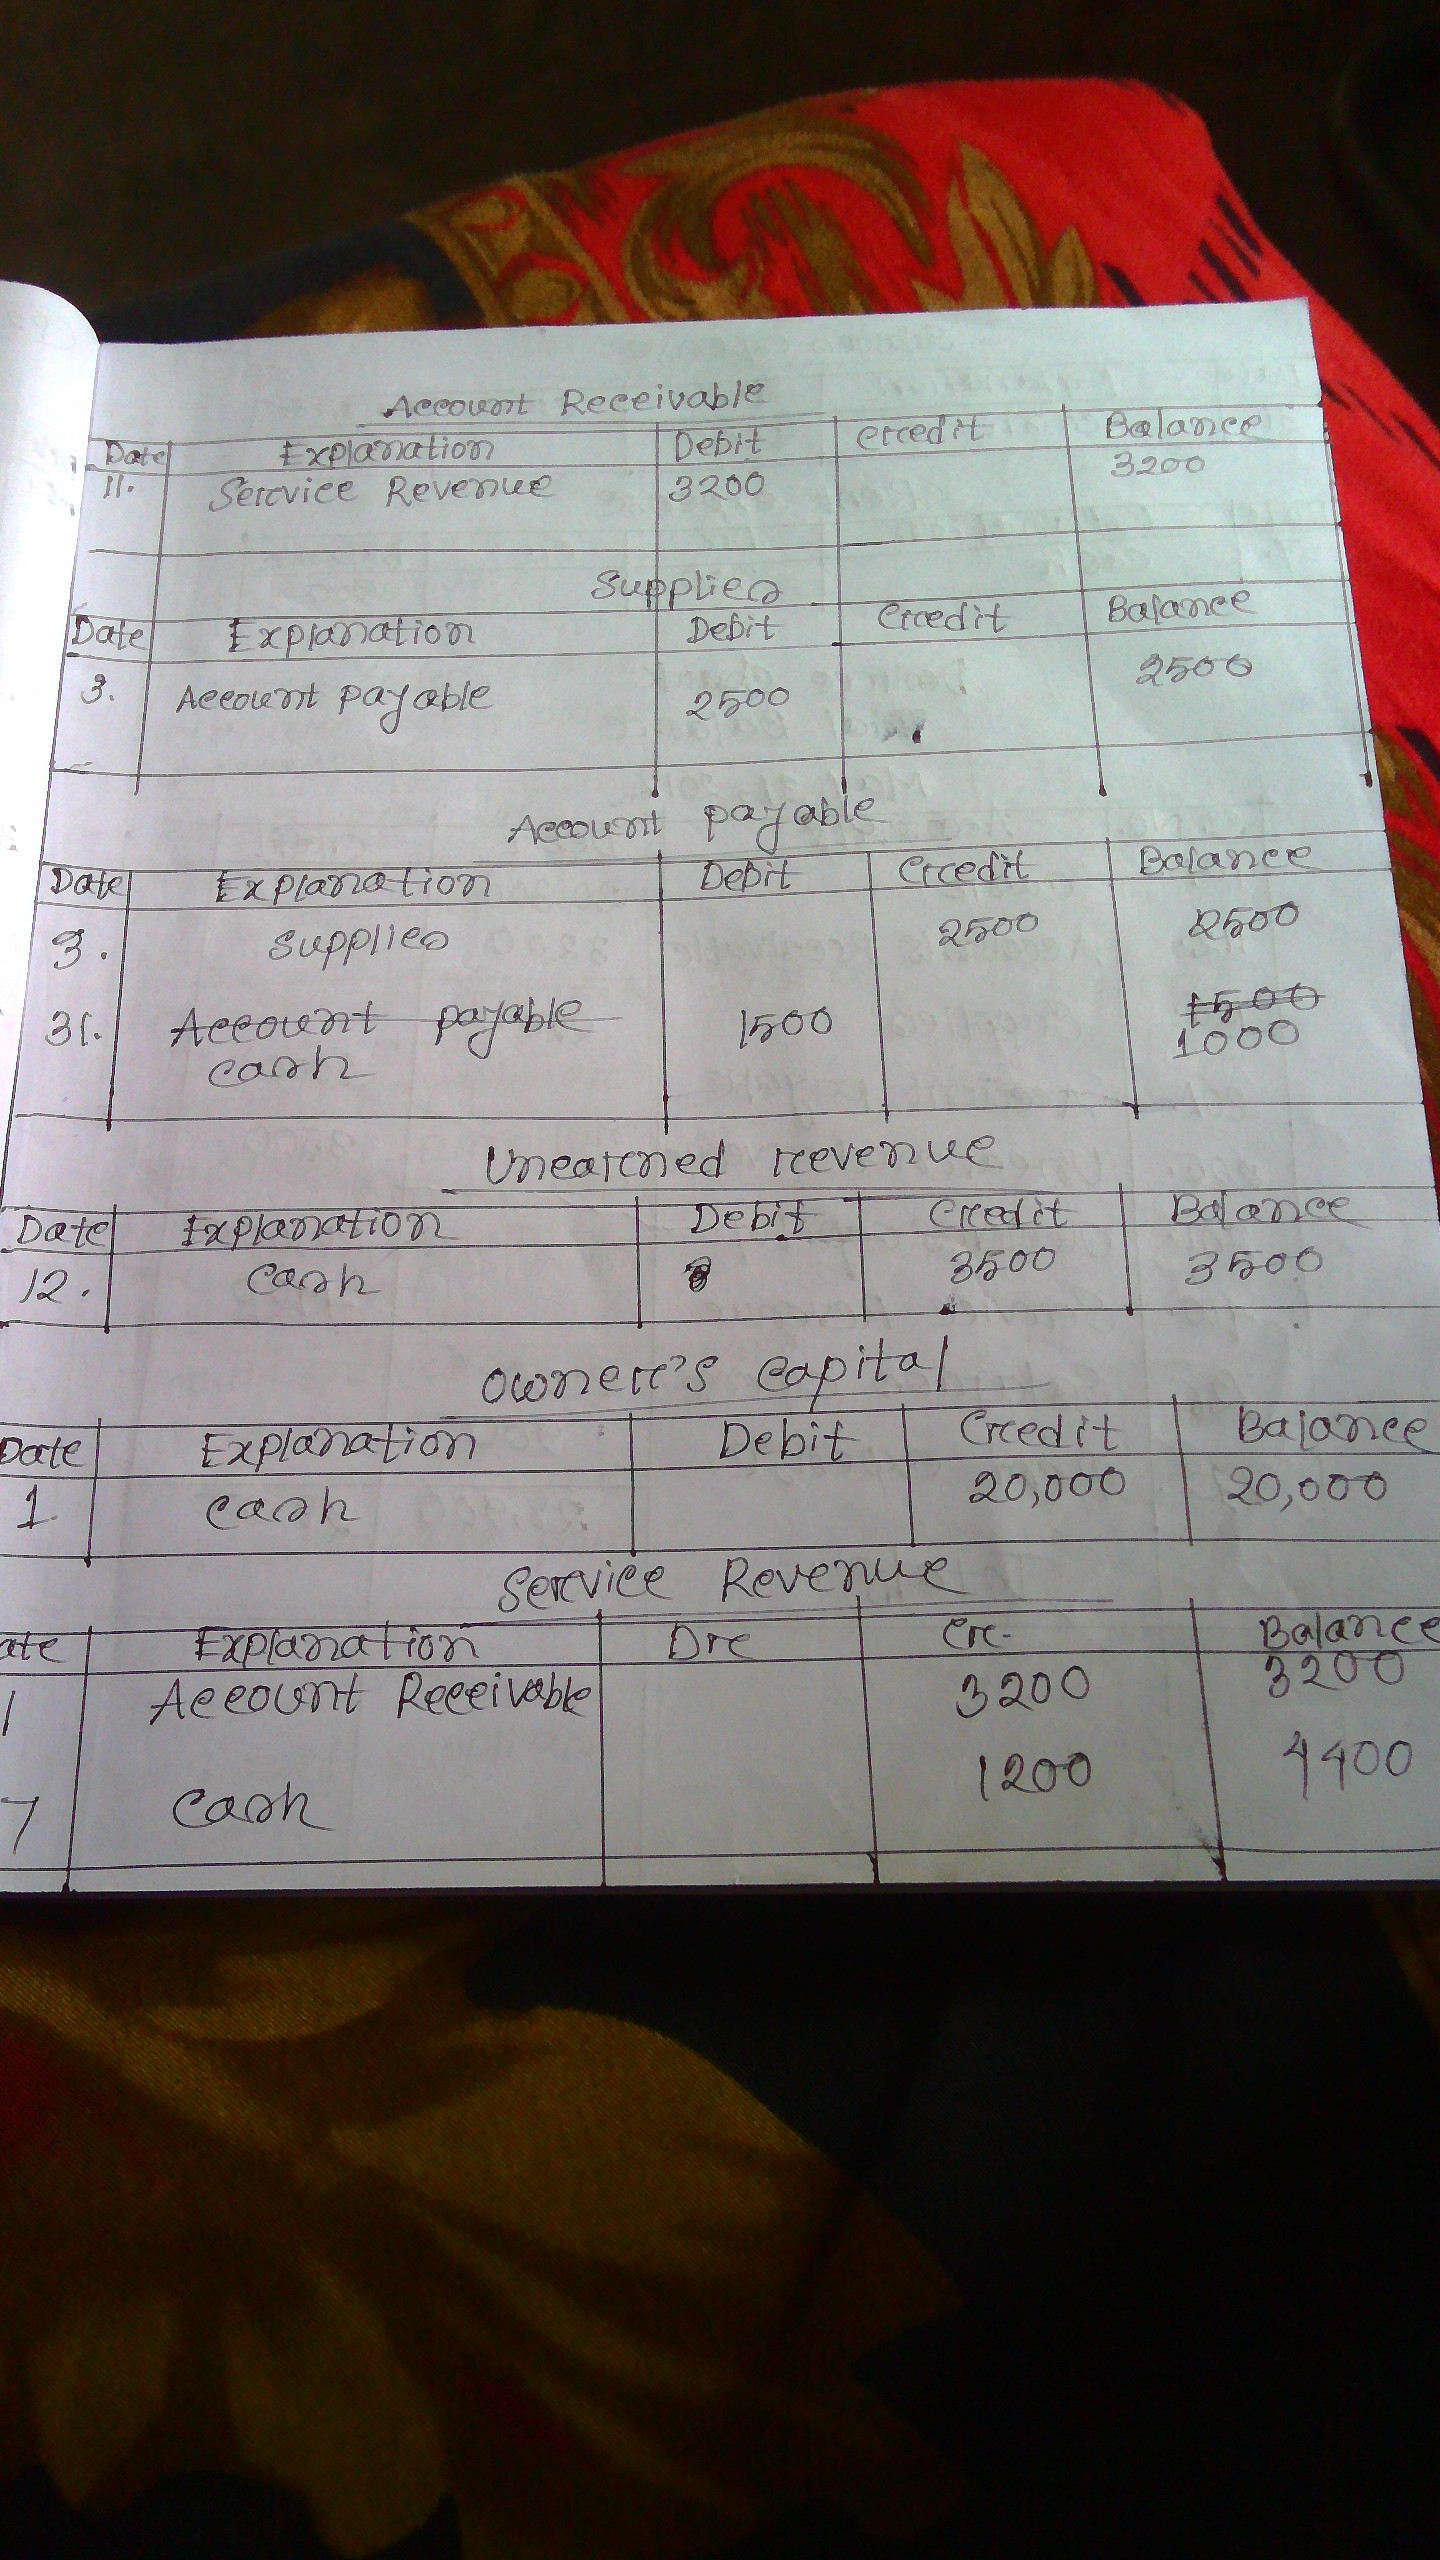 Account Receivable
Date Explanation Debit Credit Balance
11. Service Revenue 3200 3200
Supplies
Date Explanation Debit Credit Balance
3. Account payable 2500 2500
Account payable
Date Explanation Debit Credit Balance
3. Supplies 2500 2500
31. Account payable 1500 1500
cash 1000
Unearned revenue
Date Explanation Debit Credit Balance
12. Cash 3500 3500
Owner's Capital
Date Explanation Debit Credit Balance
1. cash 20,000 20,000
Service Revenue
ate Explanation Dr Cr. Balance
1 Account Receivable 3200 3200
7 Cash 1200 4400